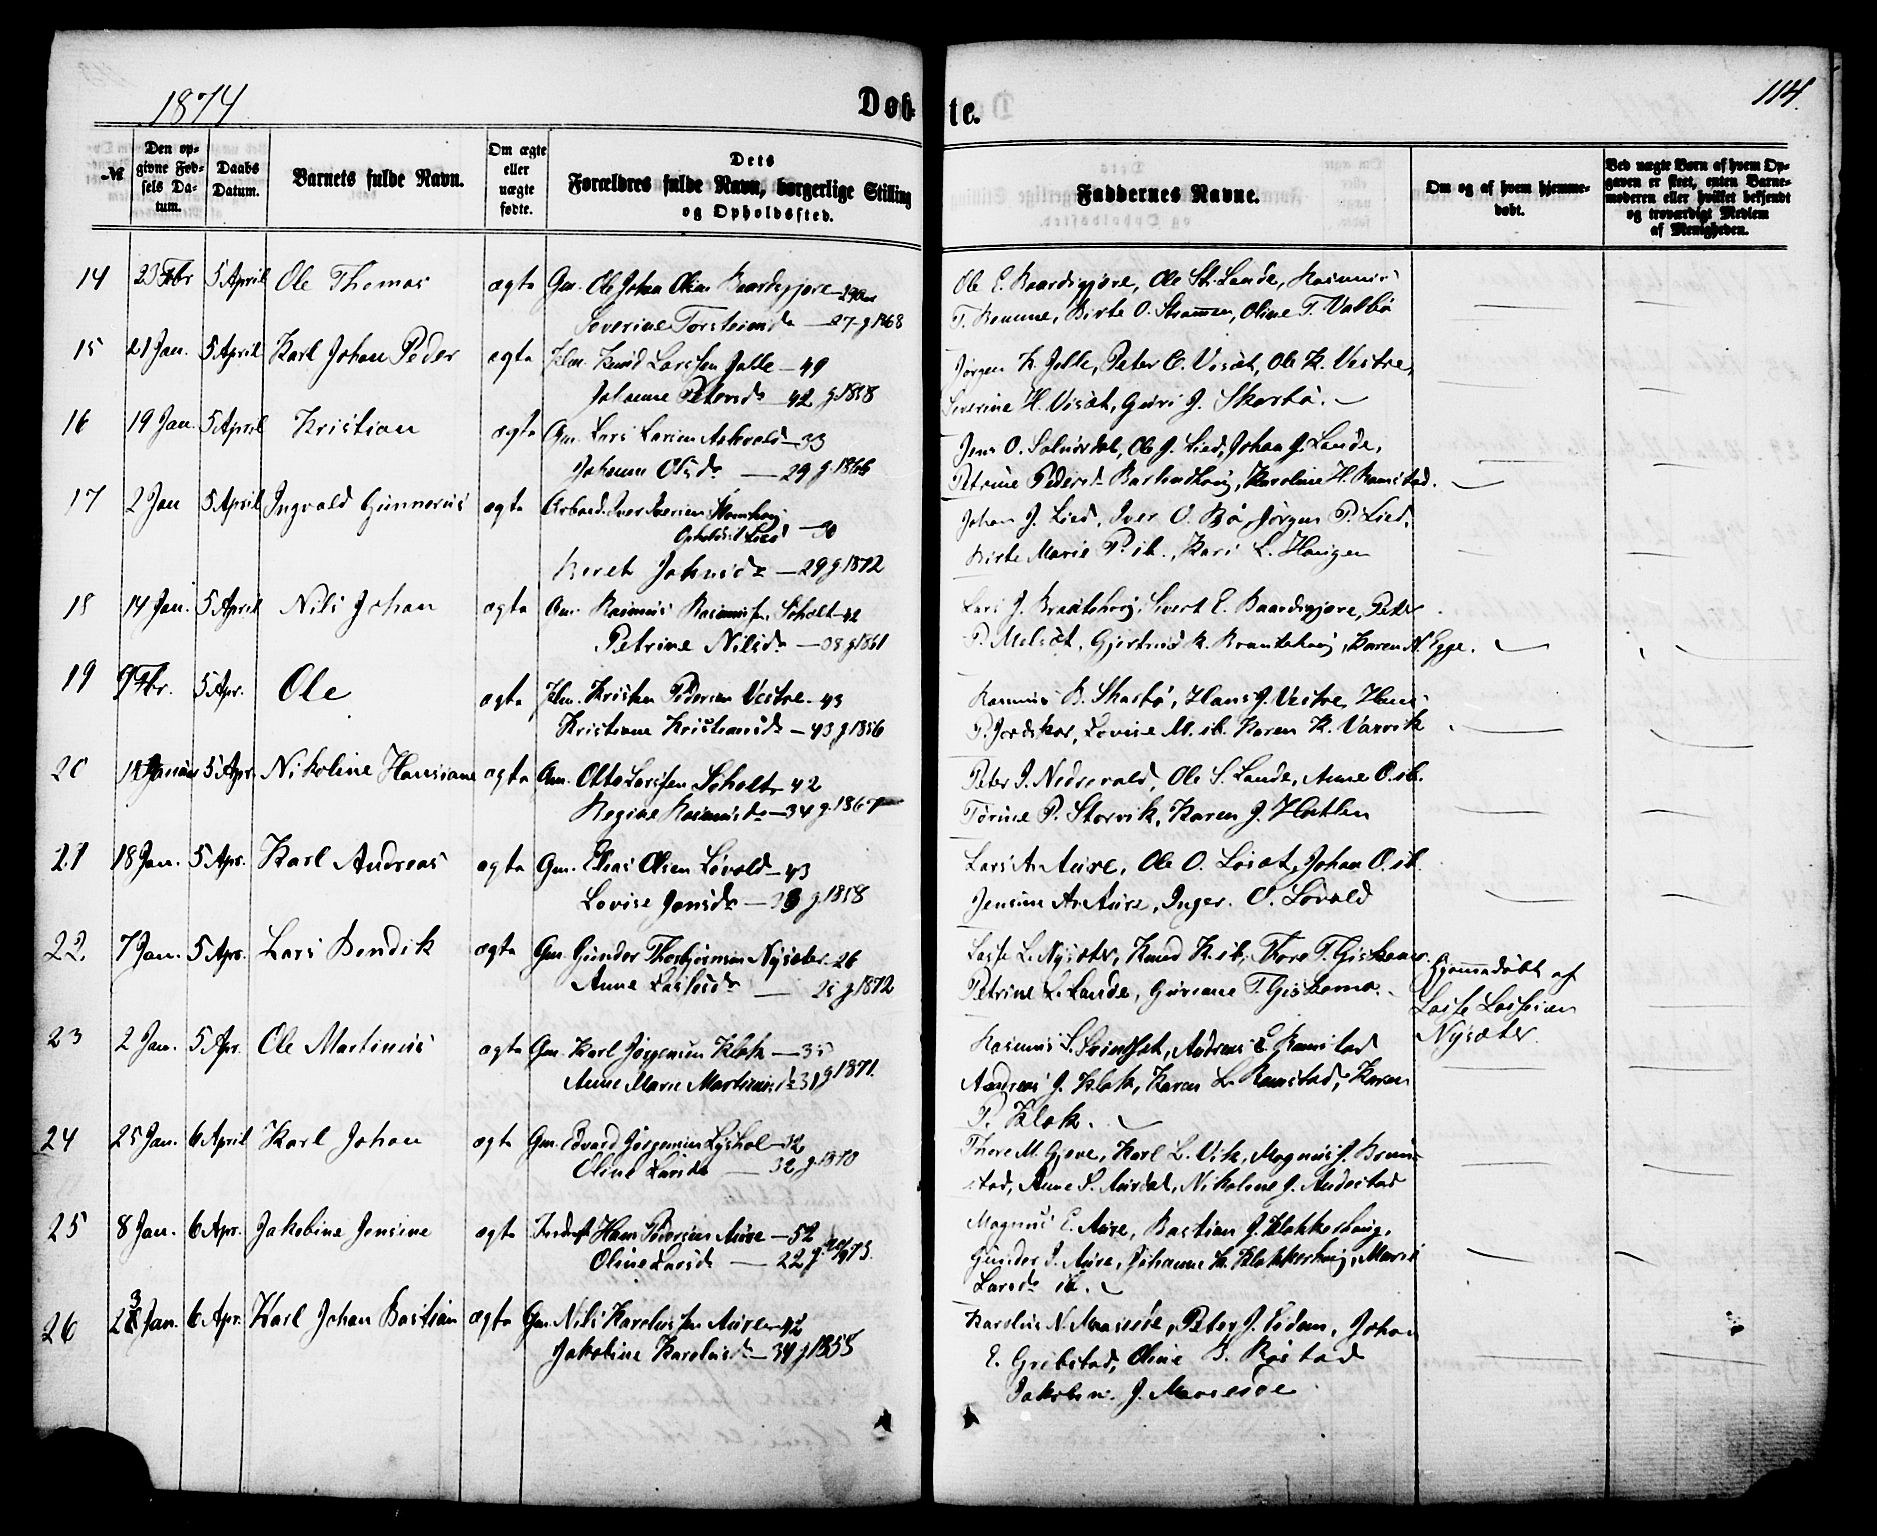 1874
Døb-
te.
114.
№
Den op-
givne Fød-
sels Da-
tum.
Daabs
Datum.
Barnets fulde Navn.
Om ægte
eller
uægte
fødte.
Dets
Forældres fulde Navn, borgerlige Stilling
og Opholdssted.
Faddernes Navne.
Om og af hvem hjemme-
døbt.
Ved uægte Børn af hvem Op-
gaven er skeet, enten Barne-
moderen eller hvilket bekjendt
og troværdigt Medlem
af Menigheden.
14 23 Fbr 5 April Ole Thomas ægte Gm. Ole Johan Olsen Baardsgjøre
Severine Torsteinsd. — 27 g 1868
Ole E. Baardsgjøre, Ole St. Lande, Rasmus
T. Remme, Birte O. Strømmen, Oline T. Valbø
15 21 Jan. 5 April Karl Johan Peder ægte Knud Larssen Jølle — 49
Johanne Petersd. — 42 g 1858
Jørgen K. Jølle, Peter C. Visæt, Ole K. Vestre,
Severine H. Visæt, Guri J. Skarbø.
16 19 Jan. 5 April Kristian ægte Gm. Lars Larsen Askvald — 33
Johanne Olsd. — 29 g 1866
Jens O. Solnørdal, Ole J. Lied, Johan J. Lande,
Petrine Pedersd. Karoline H. Ramstad.
17 2 Jan 5 April Ingvald Gunnerius ægte Arbeid. Iver Iversen
Opholdst. Lied — 30
Beret Johnsd. — 29 g 1872
Johan J. Lied, Iver O. Bø, Jørgen P. Lied,
Birte Marie P. ib., Kari L. Haugen
18 14 Jan. 5 April Nils Johan ægte Gm. Rasmus Rasmussen Scholt 42
Petrine Nilsd. — 38 g 1861
Lars J. Braatehoug, Sivert E. Baardsgjøre, Peder
P. Melsæt, Gjertrud K. Braatehoug, Karen N. Egge.
19 9 Fbr. 5 Apr. Ole ægte Kristen Pedersen Vestre — 43
Kristiane Kristiansd. — 43 g 1856
Rasmus B. Skarbø, Hans J. Vestre, Hans
P. Jordskar, Lovise M. ib. Karen K. Varvik
20 Januar 5 Apr. Nikoline Hansiane ægte Gm. Otto Larssen Scholt 42
Regine Rasmusd. — 34 g 1867
Peter J. Nedrevald, Ole S. Lande, Anne O. ib.
Tørine P. Storvik, Karen J. Hatlen
21 18 Jan. 5 Apr. Karl Andreas ægte Gm. Elias Olsen Løvold — 43
Lovise Jonsd. — 33 g 1858
Lars A. Aure, Ole O. Løsæt, Johan O. ib.
Jensine A. Aure, Inger O. Løvold
22. 7 Jan. 5 Apr. Lars Bendik ægte Gm. Gunder Thorbjørnsen Nysæter 26
Anne Lassesd. — 25 g 1872
Lasse L. Nysæter, Knud K. ib., Thore T. Giskemo.
Petrine L. Lande, Guriane T. Giskemo.
Hjemmedøbt af
Lasse Lassesen
Nysæter.
23 2 Jan. 5 Apr. Ole Martinus ægte Gm. Karl Jørgensen Klok — 35
Anne Marie Martinusd. 31 g 1871.
Rasmus S. Svindset, Andreas E. Ramstad
Andreas J. Klok, Karen L. Ramstad, Karen
P. Klok.
24 25 Jan. 6 April Karl Johan ægte Gm. Edvard Jørgensen Lyshol — 32
Oline Larsd. — 32 g 1870
Thore M. Gjeve, Karl L. Vik, Magnus J. Brun-
stad, Anne S. Aurdal, Nikoline J. Audestad
25 8 Jan. 6 Apr. Jakobine Jensine ægte Inderst Hans Pedersen Aure — 52
Oline Larsd. — 22 g 1873.
Magnus E. Aure, Bastian J. Klokkerhoug,
Gunder J. Aure, Johanne K. Klokkerhoug, Marie
Larsd. ib.
26 23 Jan. 6 Apr. Karl Johan Bastian ægte Gm. Nils Karolussen Aure — 42
Jakobine Karolusd. — 34 g 1858
Karolus N. Maseide, Peter J. Eidem, Johan
E. Gribstad, Oline B. Rostad
Jakobine J. Maseide